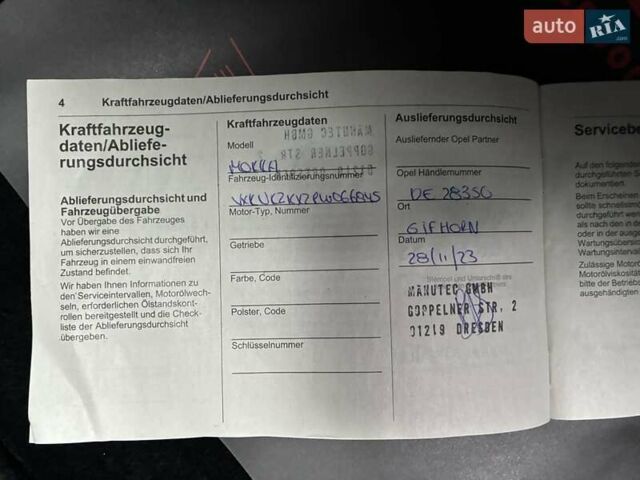 auto RIA
.com
4 Kraftfahrzeugdaten/Ablieferungsdurchsicht
Kraftfahrzeug-
daten/Abliefe-
rungsdurchsicht
Ablieferungsdurchsicht und
Fahrzeugübergabe
Vor Übergabe des Fahrzeuges
haben wir eine
Ablieferungsdurchsicht durchgeführt,
um sicherzustellen, dass sich Ihr
Fahrzeug in einem einwandfreien
Zustand befindet.
Wir haben Ihnen Informationen zu
den Serviceintervallen, Motorölwech-
seln, erforderlichen Ölstandskont-
rollen bereitgestellt und die Check-
liste der Ablieferungsdurchsicht
übergeben.
Kraftfahrzeugdaten
MANUTEC GMBH
Modell
GOPPELNER STR. 2
MOKKA
Fahrzeug-Identifizierungsnummer
Motor-Typ, Nummer
Getriebe
Farbe, Code
Polster, Code
Schlüsselnummer
Auslieferungsdurchsicht
Ausliefernder Opel Partner
Opel Händlernummer
DE 28350
Ort
GIFHORN
Datum
28/11/23
Stempel und Unterschrift des
MANUTEC GMBH
GOPPELNER STR. 2
01219 DRESDEN
Serviceb
Auf den folgenden
durchgeführten S
dokumentiert.
Beim Erscheinen
sollte schnellstmö
durchgeführt wer
als nach den in de
oder in der ausge
Wartungsübersic
Wartungsinterval
Zulässige Motorö
Motorölviskositä
bitte der Betriebs
ausgehändigten